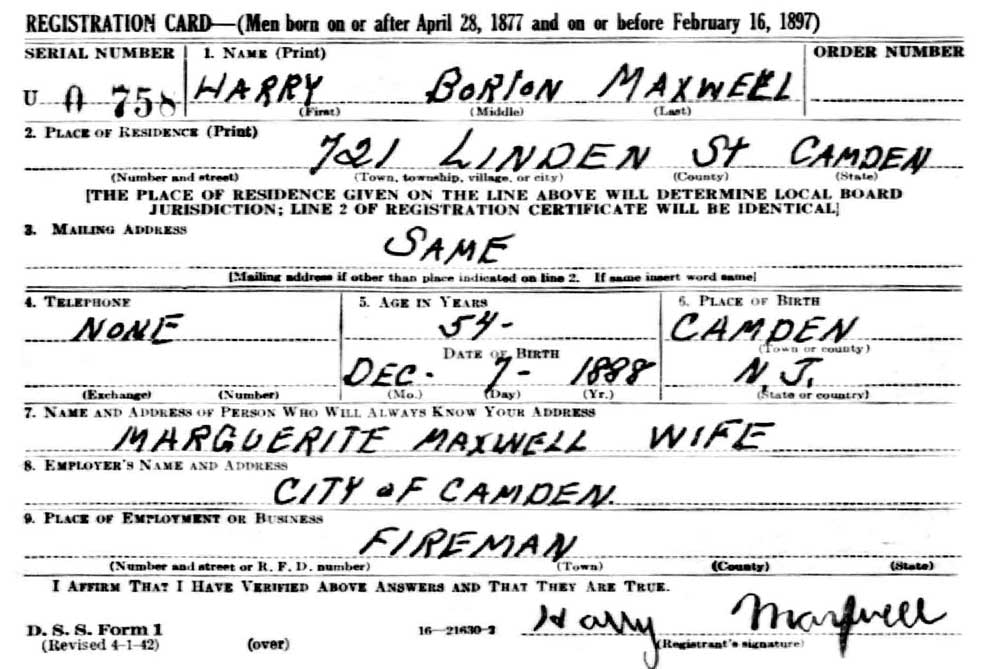 REGISTRATION CARD—(Men born on or after April 28, 1877 and on or before February 16, 1897)
SERIAL NUMBER 1. NAME (Print) ORDER NUMBER
U 0 758 HARRY BORTON MAXWELL
(First) (Middle) (Last)
2. PLACE OF RESIDENCE (Print)
721 LINDEN St CAMDEN
(Number and street) (Town, township, village, or city) (County) (State)
[THE PLACE OF RESIDENCE GIVEN ON THE LINE ABOVE WILL DETERMINE LOCAL BOARD
JURISDICTION; LINE 2 OF REGISTRATION CERTIFICATE WILL BE IDENTICAL]
3. MAILING ADDRESS
SAME
[Mailing address if other than place indicated on line 2. If same insert word same]
4. TELEPHONE 5. AGE IN YEARS 6. PLACE OF BIRTH
NONE 54- CAMDEN
DATE OF BIRTH (Town or county)
DEC. 7- 1888 N.J.
(Exchange) (Number) (Mo.) (Day) (Yr.) (State or country)
7. NAME AND ADDRESS OF PERSON WHO WILL ALWAYS KNOW YOUR ADDRESS
MARGUERITE MAXWELL WIFE
8. EMPLOYER'S NAME AND ADDRESS
CITY OF CAMDEN.
9. PLACE OF EMPLOYMENT OR BUSINESS
FIREMAN
(Number and street or R. F. D. number) (Town) (County) (State)
I AFFIRM THAT I HAVE VERIFIED ABOVE ANSWERS AND THAT THEY ARE TRUE.
Harry Maxwell
D. S. S. Form 1 16—21630-2 (Registrant's signature)
(Revised 4-1-42) (over)